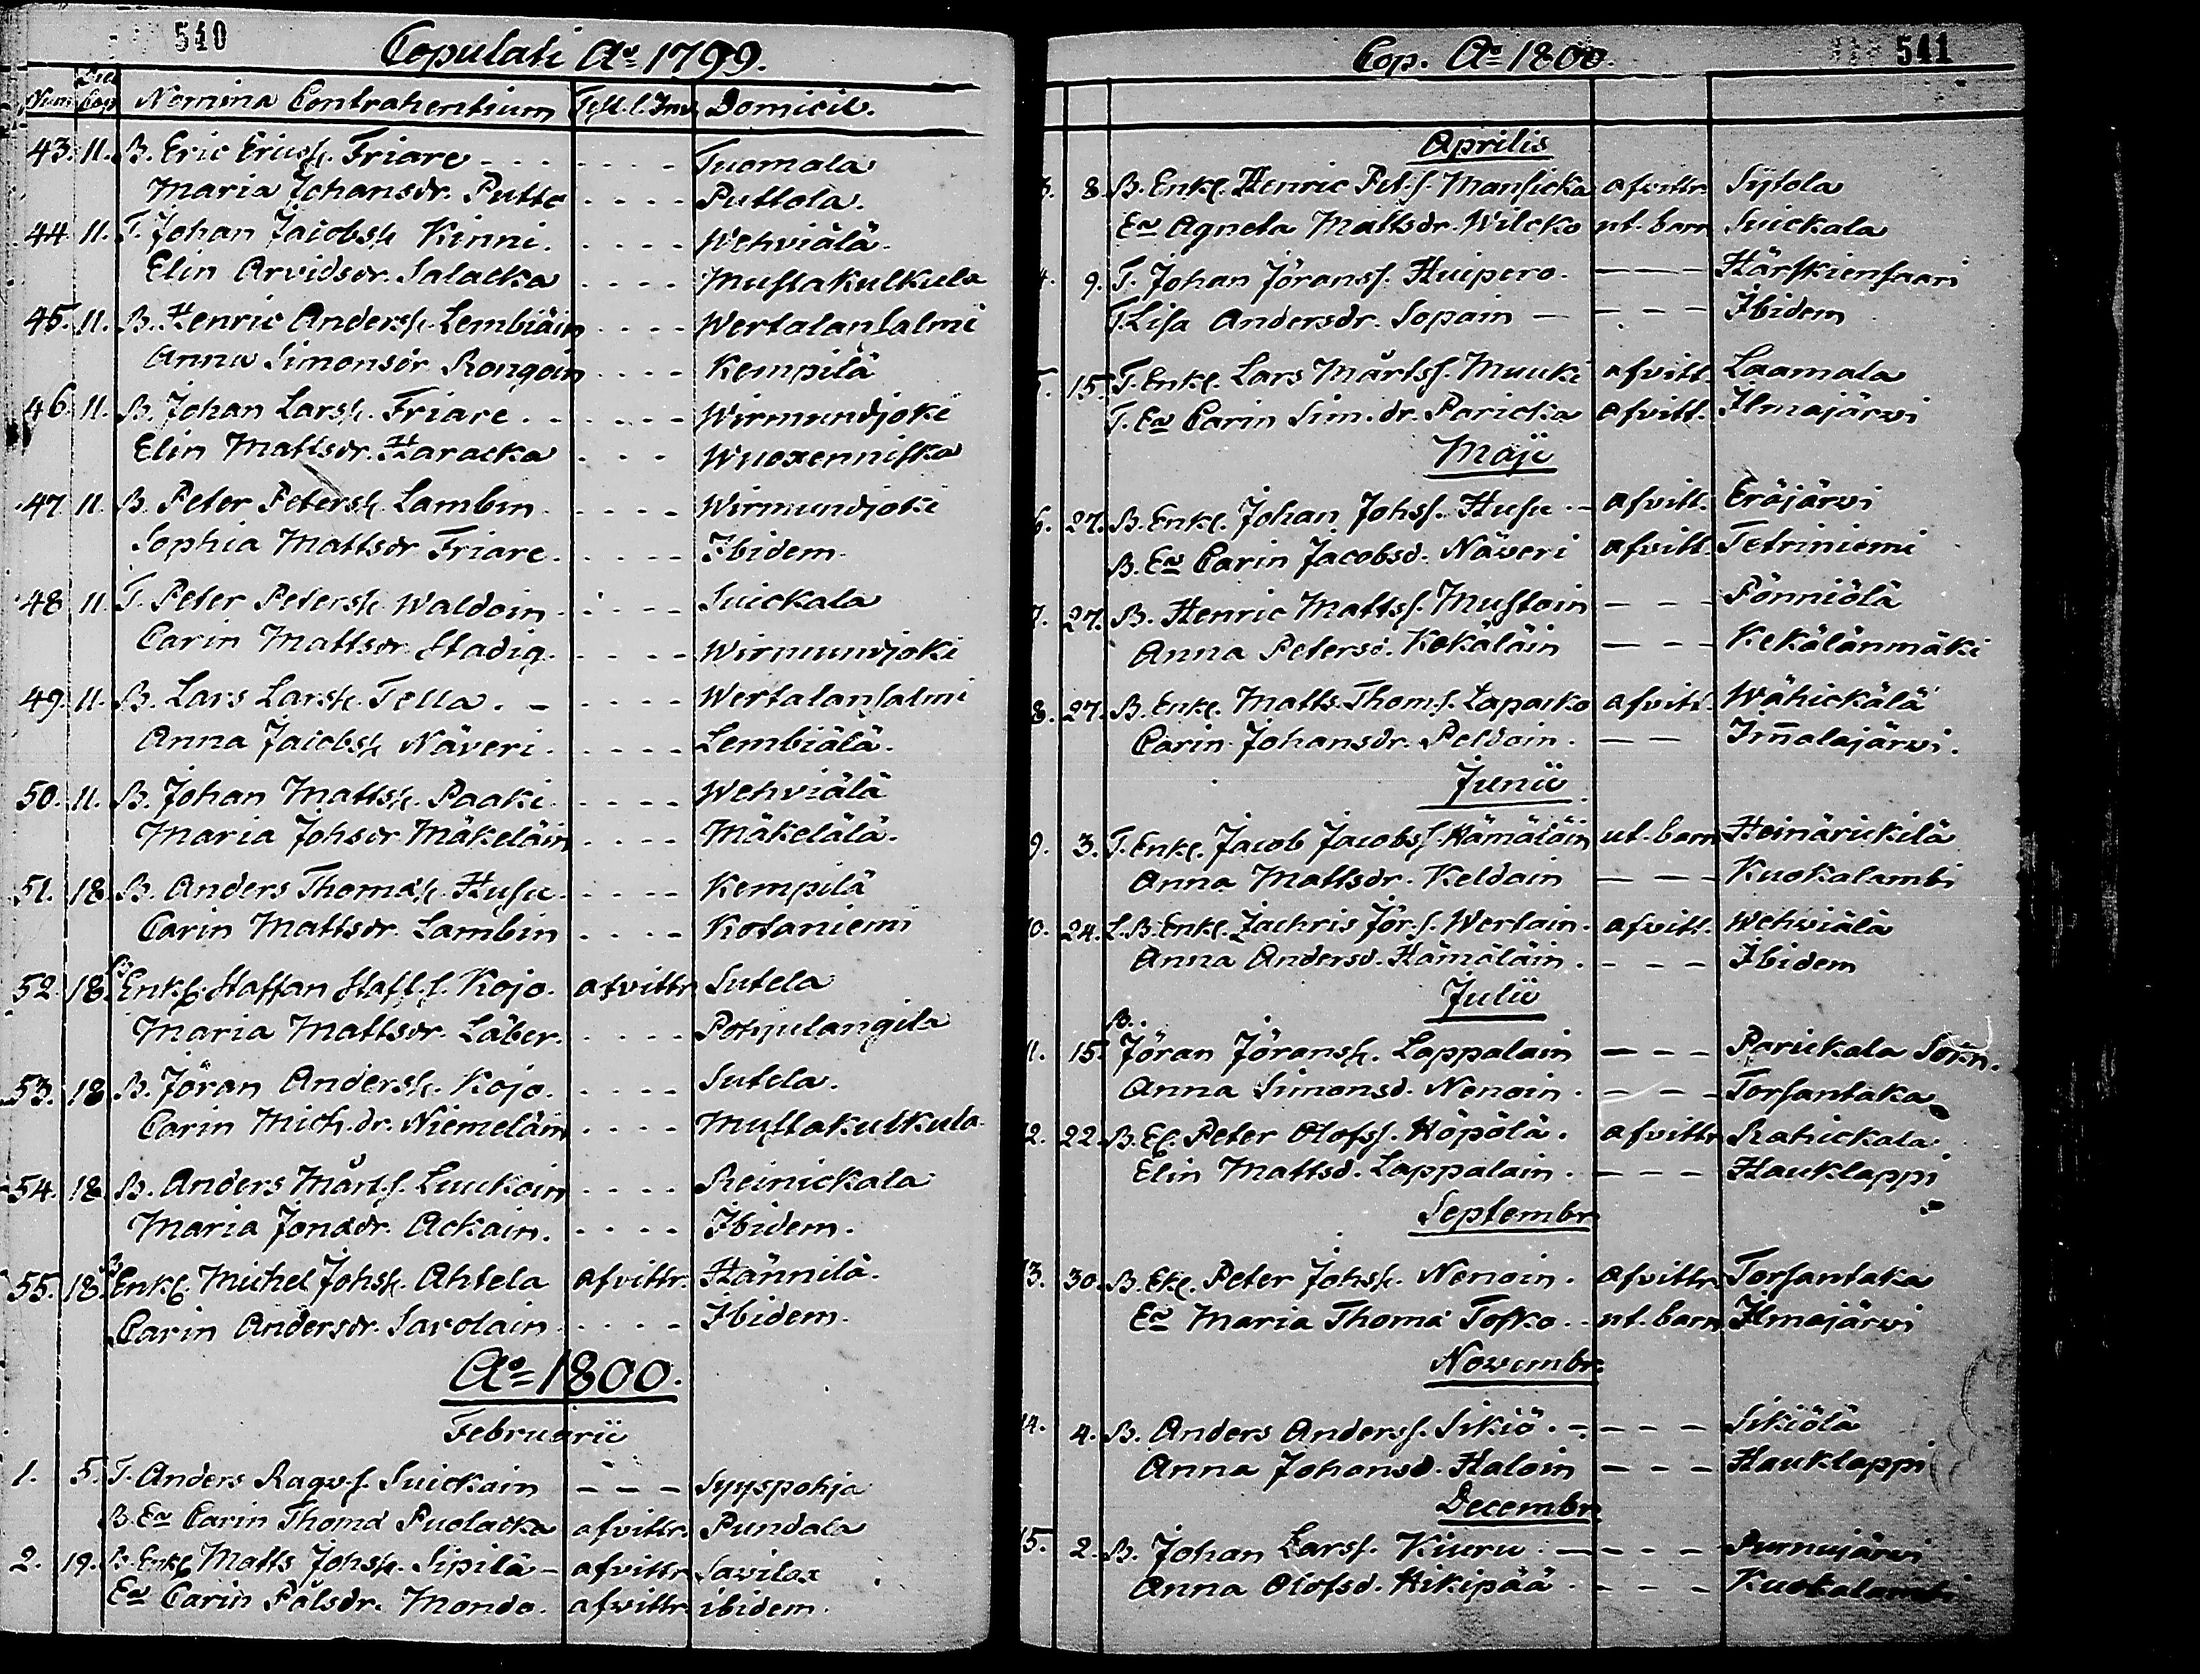 540
Copulati Aº 1799.
Num Die Cop Nomina Contrahentium Test. l. Inv. Domicil.
43. 11. B. Eric Ericss. Friare - - - - - - - Tuomala
Maria Johansdr. Putto - - - - Puttola.
44. 11. T. Johan Jacobss. Kinni. - - - - Wehviälä.
Elin Arvidsdr. Salacka - - - - Mustakulkula
45. 11. B. Henric Anderss. Lembiäin - - - - Wertalansalmi
Anna Simonsdr Rongoin - - - - Kempilä
46. 11. B. Johan Larss. Friare. - - - - - Wirmundjoki
Elin Mattsdr. Haracka - - - Wuoxenniska
47 11. B. Peter Peterss. Lambin - - - - Wirmundjoki
Sophia Mattsdr Friare. - - - - Ibidem.
48 11. T. Peter Peterss. Waldoin - - - - Suickala
Carin Mattsdr. Stadig. - - - - Wirmundjoki
49. 11. B. Lars Larss. Tella. - - - - - Wertalansalmi
Anna Jacobss. Näveri. - - - - Lembiälä.
50. 11. B. Johan Mattss. Paaki. - - - - Wehviälä
Maria Johsdr Mäkeläin - - - - Mäkelälä.
51. 18. B. Anders Thomass. Husu. - - - - Kempilä
Carin Mattsdr. Lambin - - - - Kotaniemi
52. 18. B. Enkl. Staffan Staff.s. Kojo. afvittr Sutela
Maria Mattsdr. Läber. - - - - Pohjulangila
53. 18 B. Jöran Anderss. Kojo. - - - - Sutela.
Carin Mich.dr. Niemeläin - - - - Mustakulkula.
54. 18. B. Anders Mårt.s. Luukoin - - - - Reinickala
Maria Jonædr. Ackain. - - - - Ibidem.
55. 18. B Enkl. Michel Johss. Ahtela afvittr. Hännilä.
Carin Andersdr. Savolain - - - - Ibidem.
Aº 1800.
Februarii
1. 5. T. Anders Ragv.s. Suickain - - - Syyspohja
B. Ea Carin Thomæ Puolacka afvittr. Pundala
2. 19. B. Enkl Matts Johss. Sipilä - afvittr. Savilax
Ea Carin Pålsdr. Mondo. afvittr. ibidem.
541
Cop. Aº 1800
Aprilis
3. 8. B. Enkl. Henric Pet.s. Mansicka afvittr. Sytola
Ea Agneta Mattsdr. Wilcko ut. barn Suickala
4. 9. T. Johan Jöranss. Huipero. - - - Härskiensaari
T. Lisa Andersdr. Sopain - - - - Ibidem
5. 15. T. Enkl. Lars Mårtss. Muuki afvitt. Laamala
T. Ea Carin Sim.dr. Paricka afvitt. Ilmajärvi
Maji
6. 27. B. Enkl. Johan Johss. Husu - afvitt. Eräjärvi
B. Ea Carin Jacobsd. Näveri afvitt. Tetriniemi
7. 27. B. Henric Mattss. Mustoin - - - Pönniölä
Anna Petersd. Kekäläin - - - Kekälänmäki
8. 27. B. Enkl. Matts Thom.s. Lapacko afvitt. Wähickälä
Carin Johansdr. Peldoin. - - Im̅alajärvi.
Junii
9. 3. T. Enkl. Jacob Jacobss Hämäläin ut. barn Heinärickilä
Anna Mattsdr. Keldain - - - Kuokalambi
10. 24. L. B. Enkl. Zachris Jör.s. Wertain. afvitt. Wehviälä
Anna Andersd. Hämäläin. - - - Ibidem
Julii
11. 15. B. Jöran Jöranss. Lappalain - - - Parickala Sokn.
Anna Simonsd. Nenoin. - - - Torsantaka
12. 22. B. El. Peter Olofss. Höpölä. afvittr Rahickala.
Elin Mattsd. Lappalain. - - - Hauklappi
Septembr.
13. 30. B. Ekl. Peter Johss. Nenoin. afvittr. Torsantaka
Ea Maria Thomæ Tosko. - ut. barn Ilmajärvi
Novembr.
14. 4. B. Anders Anderss. Sikiö. - - - - Sikiölä
Anna Johansd. Haloin - - - Hauklappi
Decembr.
15. 2. B. Johan Larss. Kiuru - - - - Purnujärvi
Anna Olofsd. Hikipää. - - - Kuokalambi